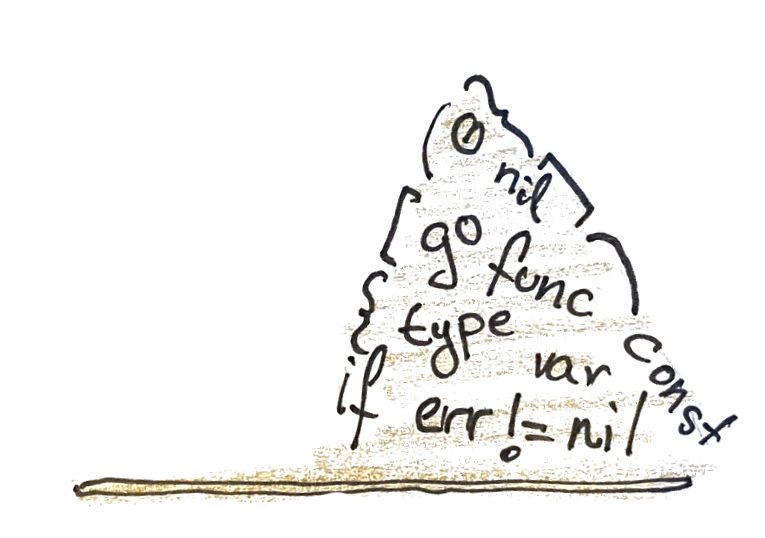 }
( 0
nil ]
[ go
func )
{ type
var const
if err != nil